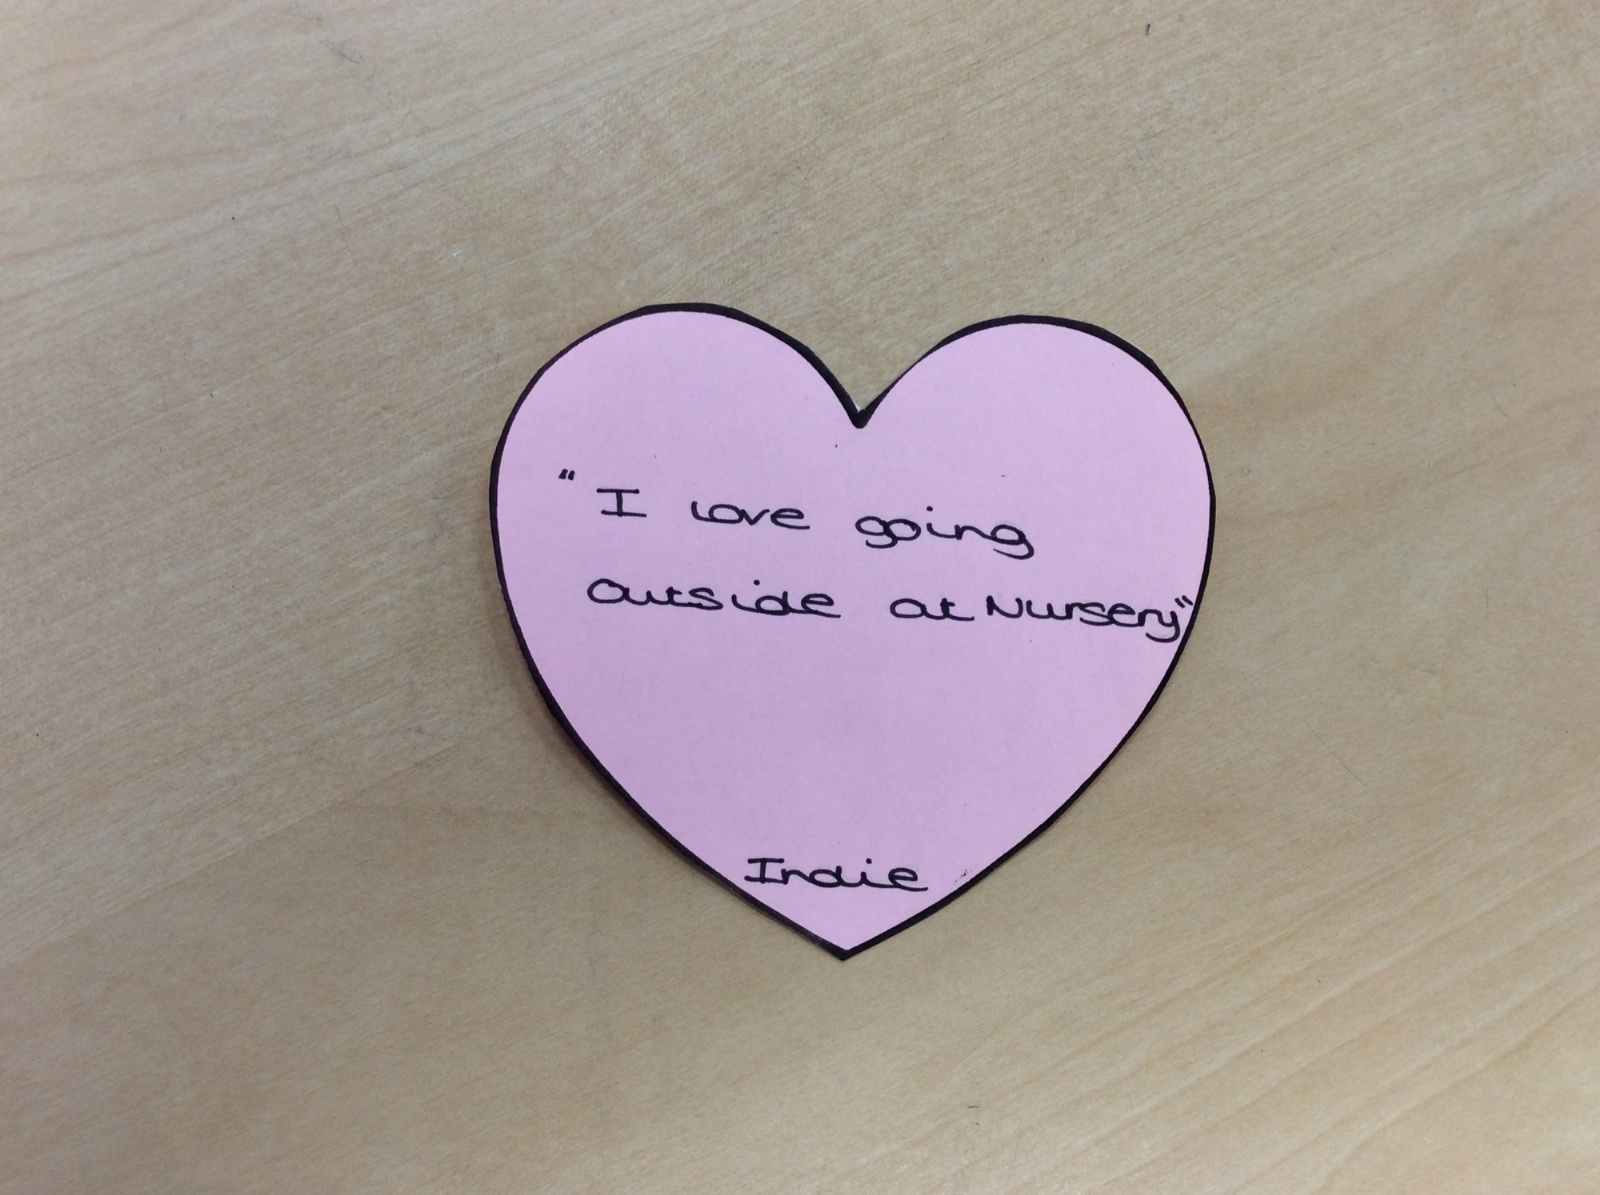 "I love going
outside at Nursery"
Indie